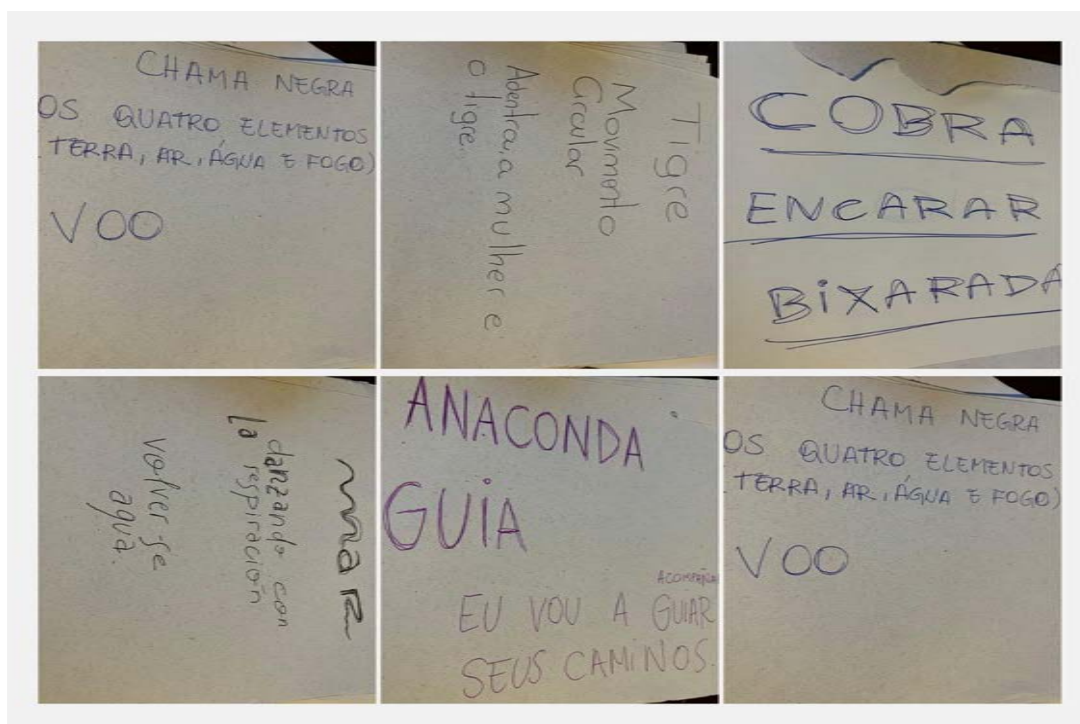 CHAMA NEGRA
OS QUATRO ELEMENTOS
TERRA, AR, ÁGUA E FOGO)
VOO
Tigre
Movimento
Circular
Adentrar a mulher e
o tigre
COBRA
ENCARAR
BiXARADA
mar
danzando con
la respiración
volver-se
agua.
ANACONDA
GUiA
ACOMPAÑA
EU VOU A GUIAR
SEUS CAMiNOS.
CHAMA NEGRA
OS QUATRO ELEMENTOS
TERRA, AR, ÁGUA E FOGO)
VOO